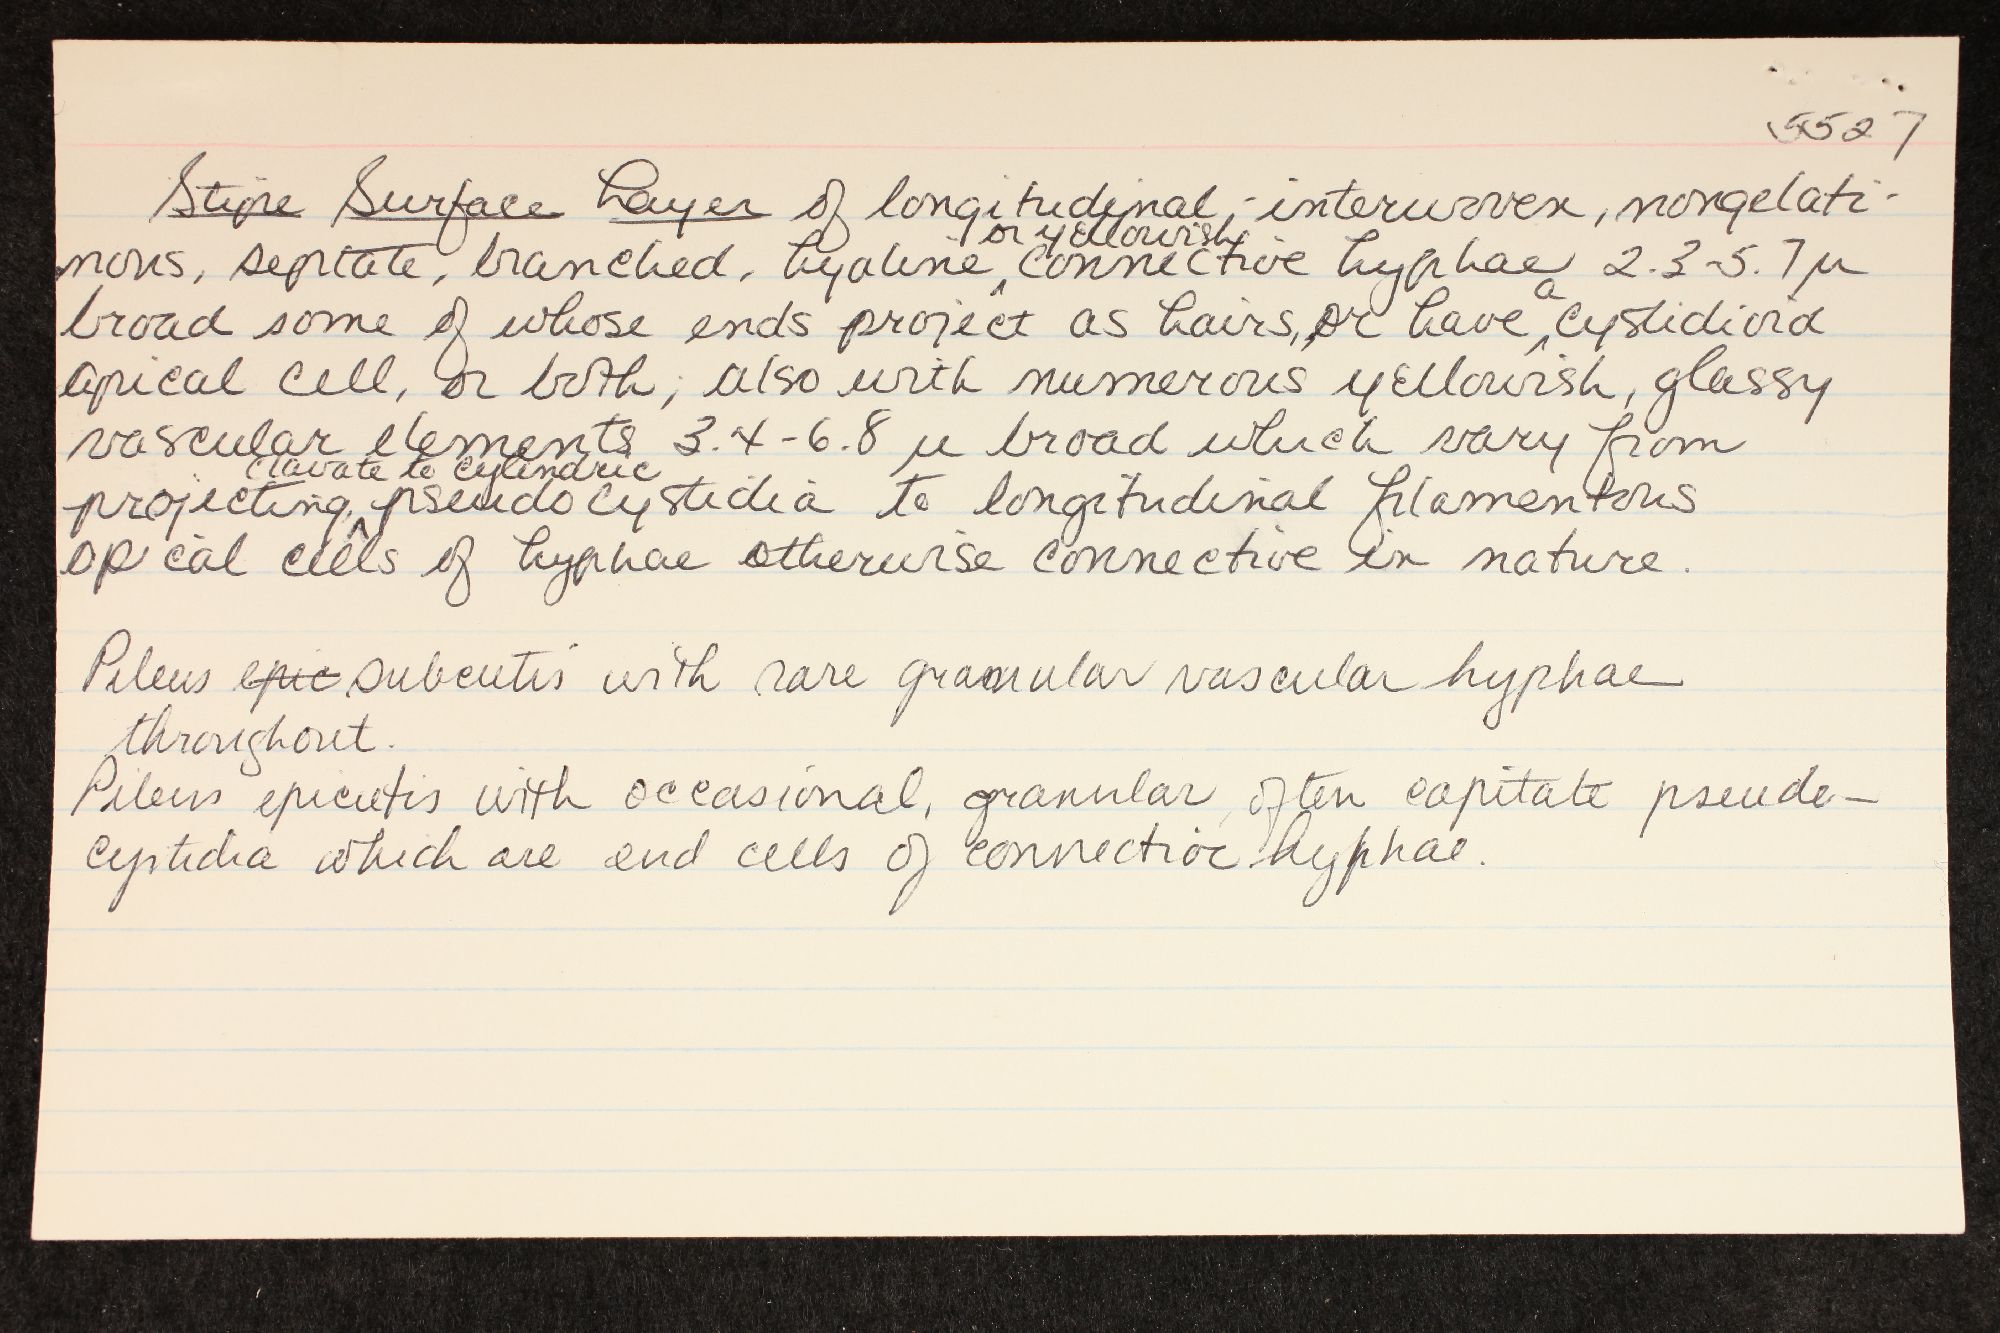 5527
Stipe Surface Layer of longitudinal, interwoven, nongelati-
nous, septate, branched, hyaline or yellowish connective hyphae 2.3-5.7 µ
broad some of whose ends project as hairs, or have a cystidioid
apical cell, or both; also with numerous yellowish, glassy
vascular elements 3.4-6.8 µ broad which vary from
projecting, clavate to cylindric pseudocystidia to longitudinal filamentous
apical cells of hyphae otherwise connective in nature.
Pileus epic subcutis with rare granular vascular hyphae
throughout.
Pileus epicutis with occasional, granular, often capitate pseudo-
cystidia which are end cells of connective hyphae.